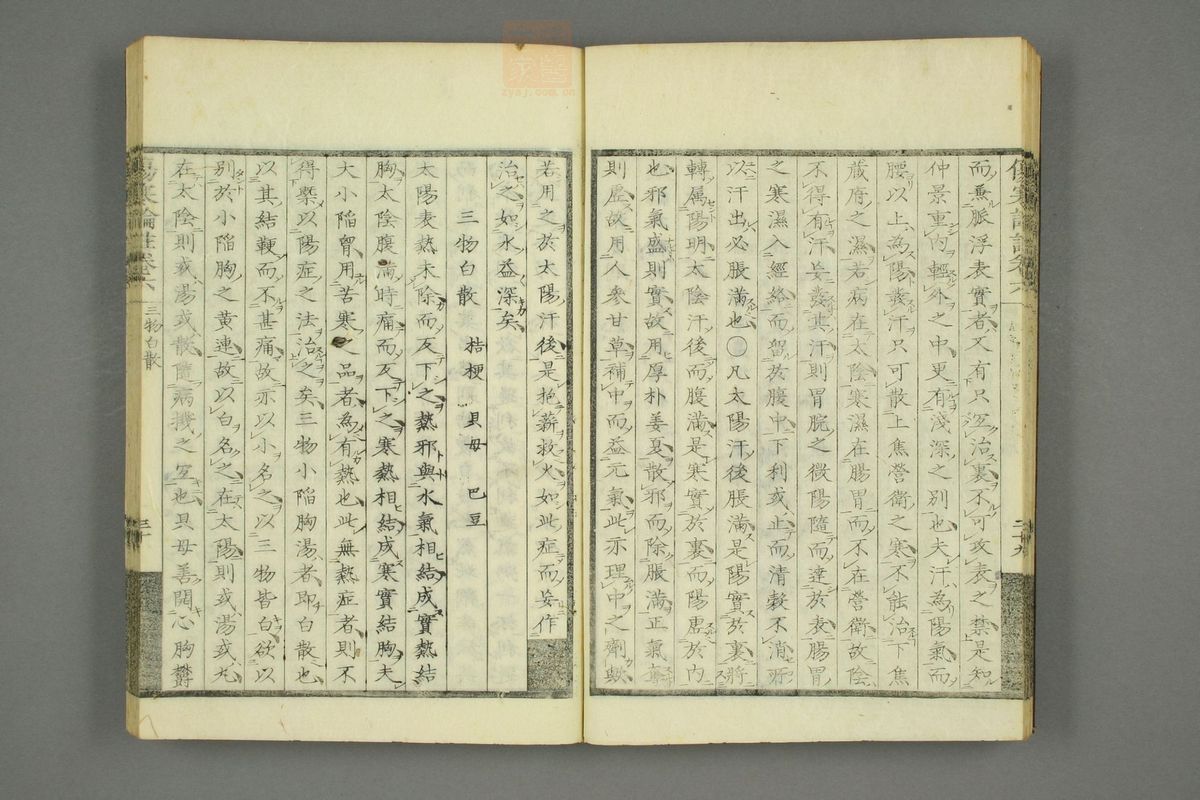 而兼脈浮表實者又有只宜治裏不可攻表之禁是知
仲景重內輕外之中更有淺深之別也夫汗為陽氣而
腰以上為陽發汗只可散上焦營衛之寒不能治下焦
蔵府之濕若病在太陰寒濕在腸胃而不在營衛故陰
不得有汗妄發其汗則胃脘之微陽隨而達於表腸胃
之寒濕入經絡而留於腹中下利或止而清穀不消所
以汗出必脹滿也〇凡太陽汗後脹滿是陽實於裏將
轉属陽明太陰汗後而腹滿是寒實於裏而陽虛於內
也邪氣盛則實故用厚朴姜夏散邪而除脹滿正氣奪
則虛故用人參甘草補中而益元氣此亦理中之劑歟
若用之於太陽汗後是抱薪救火如此症而妄作
治之如水益深矣
三物白散 桔梗 貝母 巴豆
太陽表熱未除而反下之熱邪與水氣相結成實熱結
胸太陰腹滿時痛而反下之寒熱相結成寒實結胸夫
大小陷胷用苦寒之品者為有熱也此無熱症者則不
得槩以陽症之法治之矣三物小陷胸湯者即白散也
以其結鞕而不甚痛故亦以小名之以三物皆白欲以
別於小陷胸之黄連故以白名之在太陽則或湯或丸
在太陰則或湯或散隨病機之宜也貝母善開心胸欝
三物白散
三十